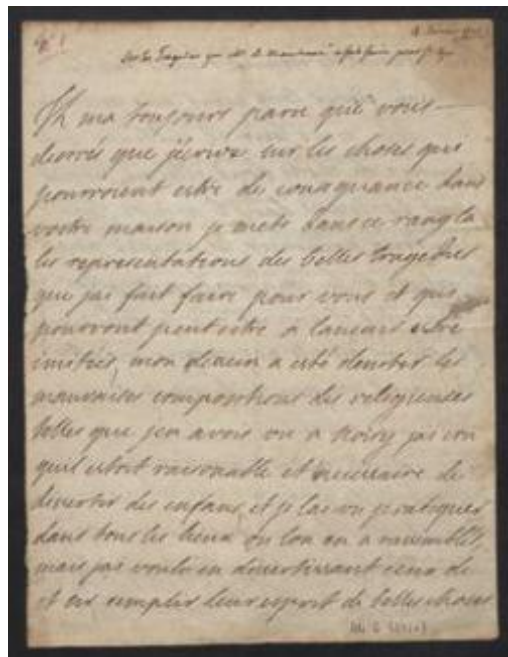 Sur les Tragedies que Me de Maintenon a fait faire pour St Cyr
Il ma toujours paru que vous
desirés que j'ecrive sur les choses qui
pourroient estre de consequance dans
vostre maison je mets dans ce rang la
les representations des belles tragedies
que jai fait faire pour vous et qui
pourront peutestre a lavenir estre
imitées, mon dessein a esté deviter les
mauvaises compositions des religieuses
telles que jen avois vu a Noisy jai cru
quil estoit raisonable et necessaire de
divertir des enfans, et je lai vu pratiquer
dans tous les lieux ou lon en a rassemblés,
mais jai voulu en divertissant ceux de
et en remplir leur esprit de belles choses